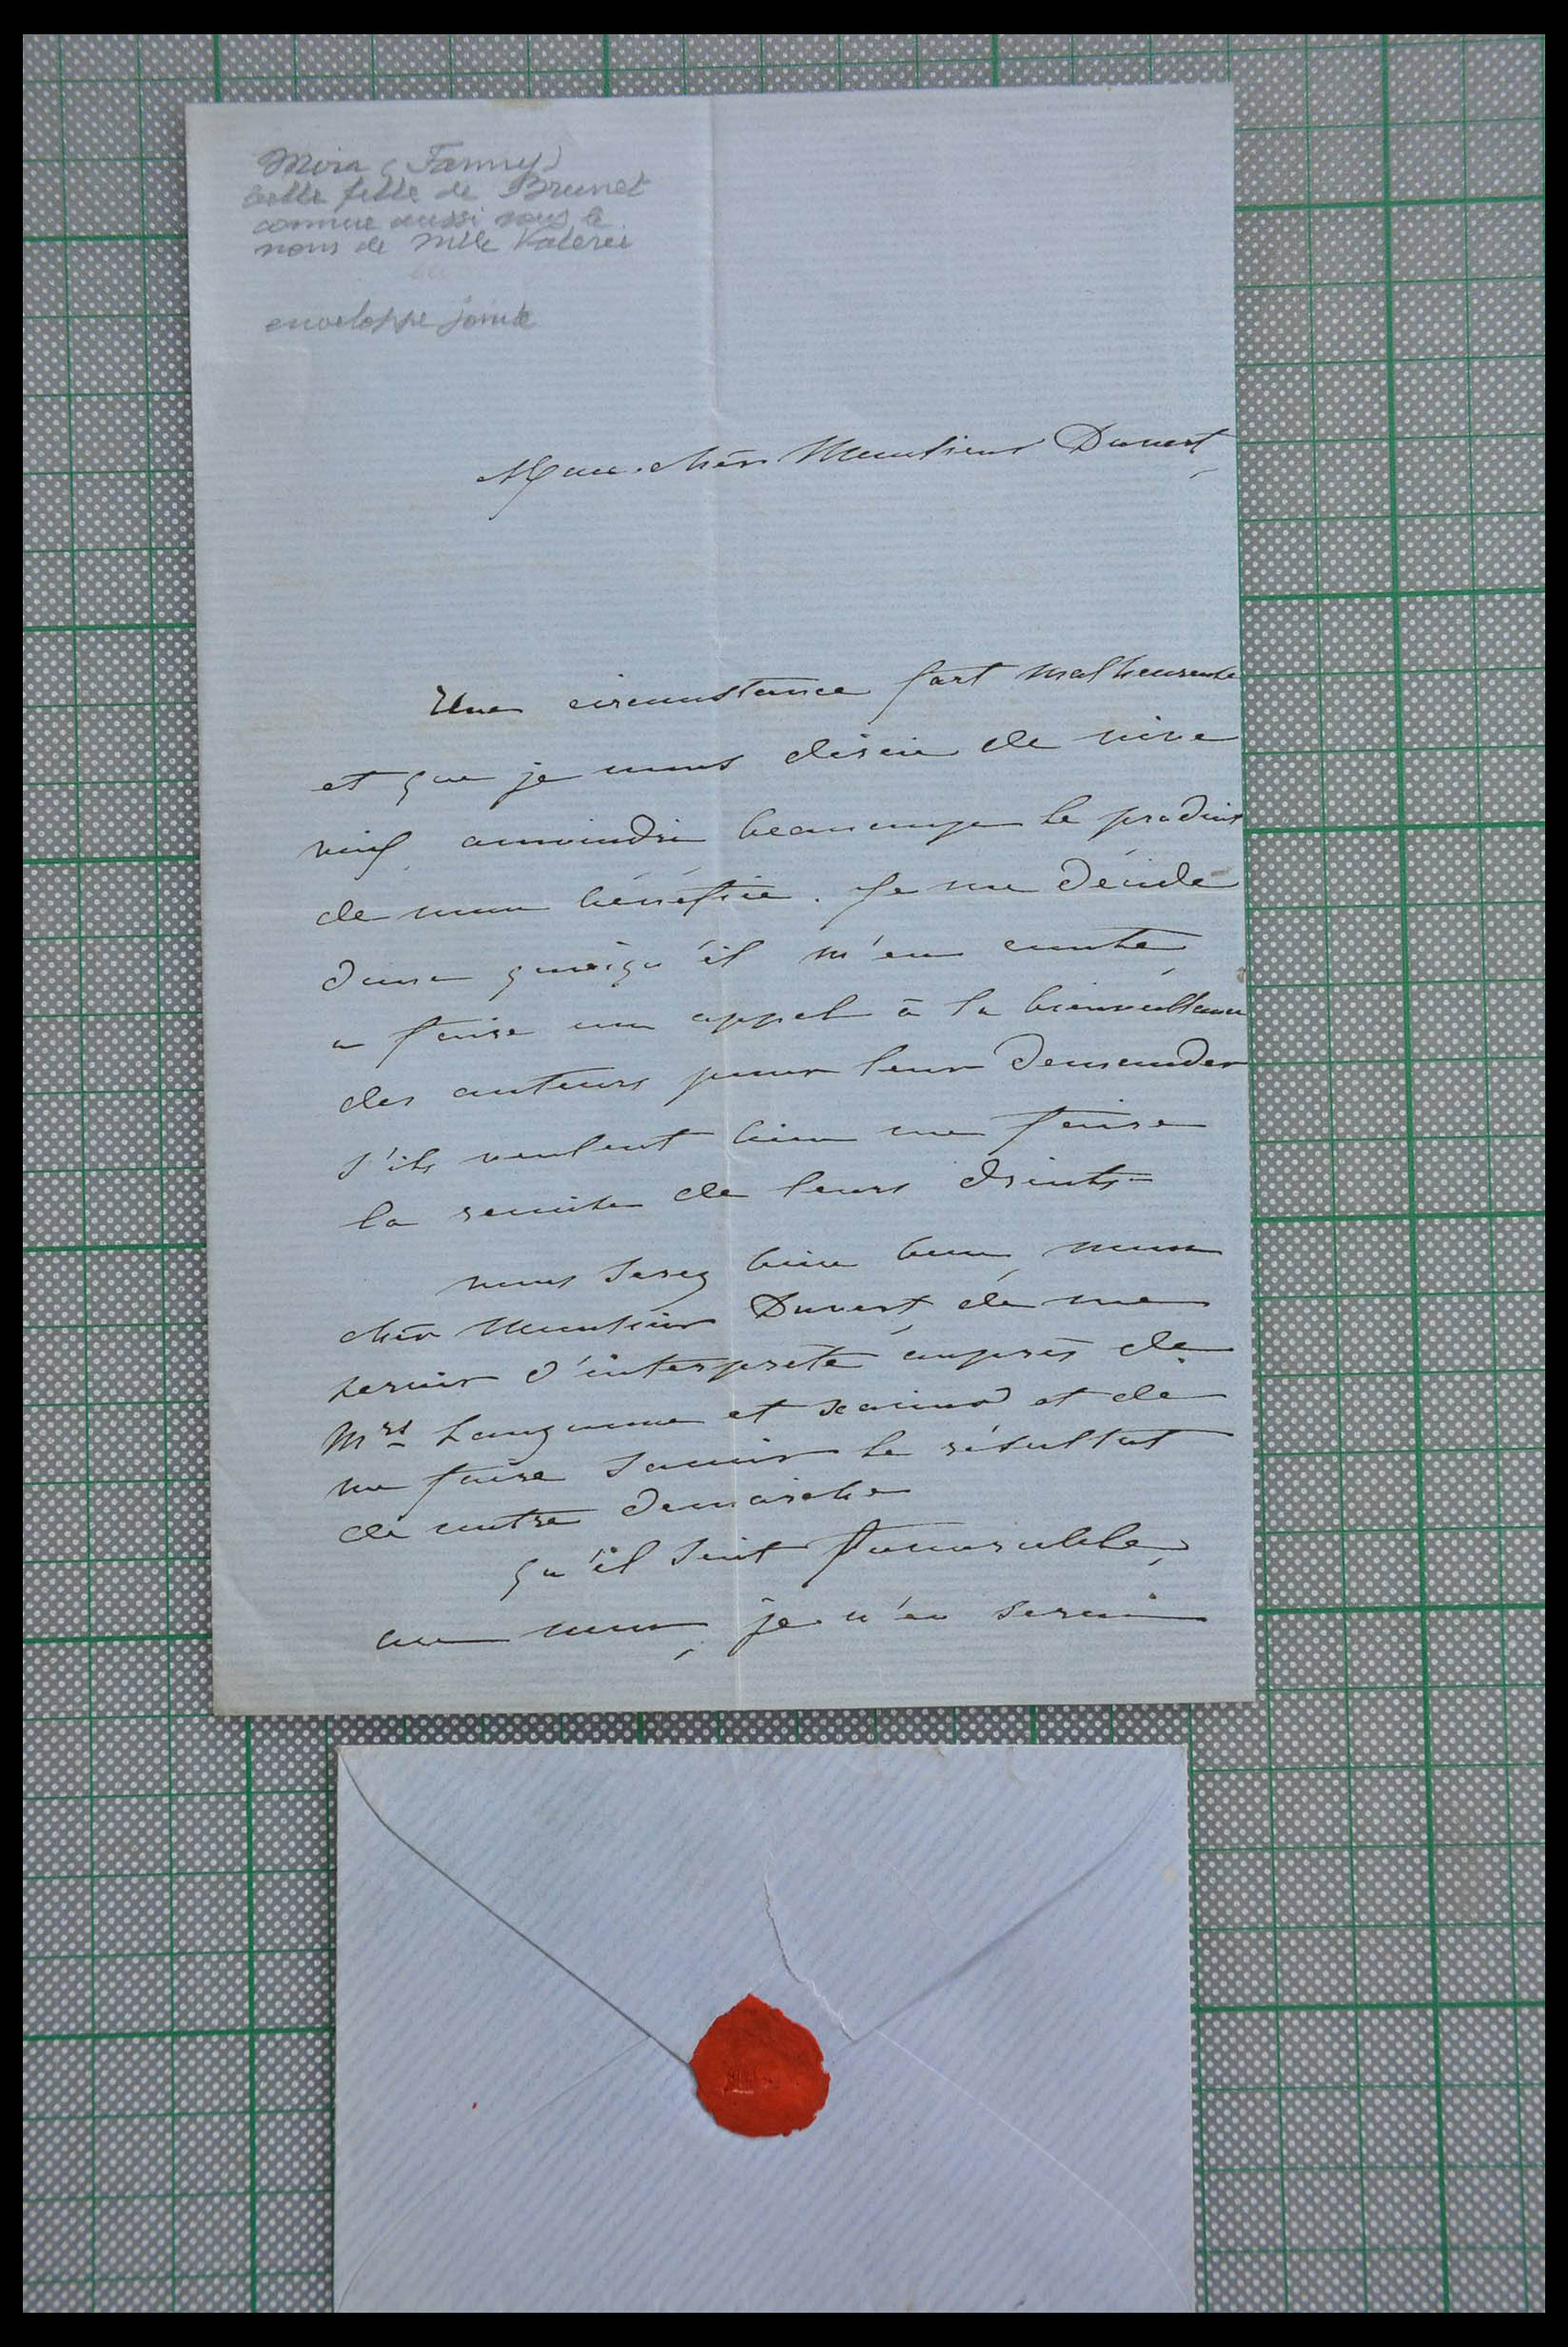 Mira (Fanny)
belle fille de Brunet
connue aussi sous le
nom de Mlle Valerie
enveloppe jointe
Mon cher Monsieur Duvert,
Une circonstance fort malheureuse
et que je vous dirai de vive
voix, amoindri beaucoup le produit
de mon bénéfice. Je me décide
donc quoiqu'il m'en coute,
a faire un appel à la bienveillance
des auteurs pour leur demander
s'ils veulent bien me faire
la remise de leurs droits.
vous serez bien bon, mon
cher Monsieur Duvert, de me
servir d'interprète auprès de
Mrs Lauzanne et et de
me faire savoir le résultat
de votre demarche
qu'il soit favorable,
ou non, je n'en serai